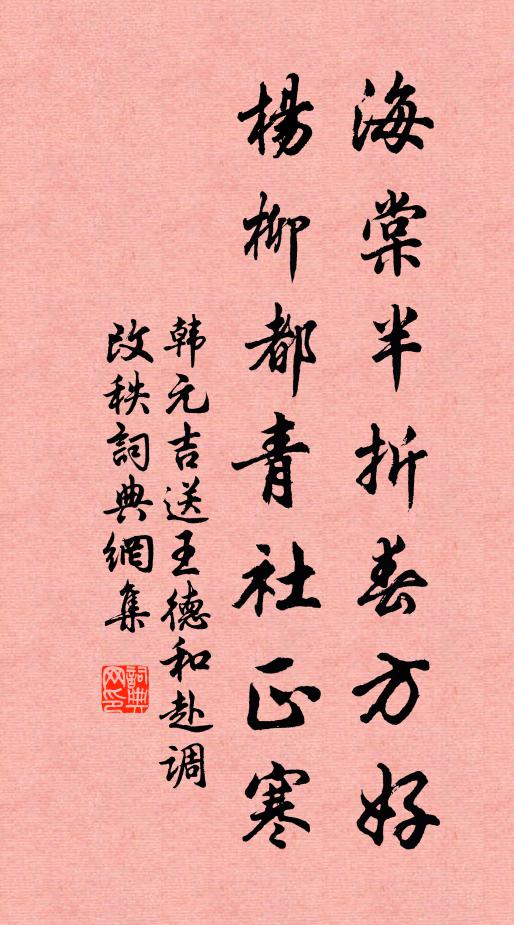 海棠半折春方好
楊柳都青社正寒
韩元吉送王德和赴调
改秩詞典網集
詞典网印